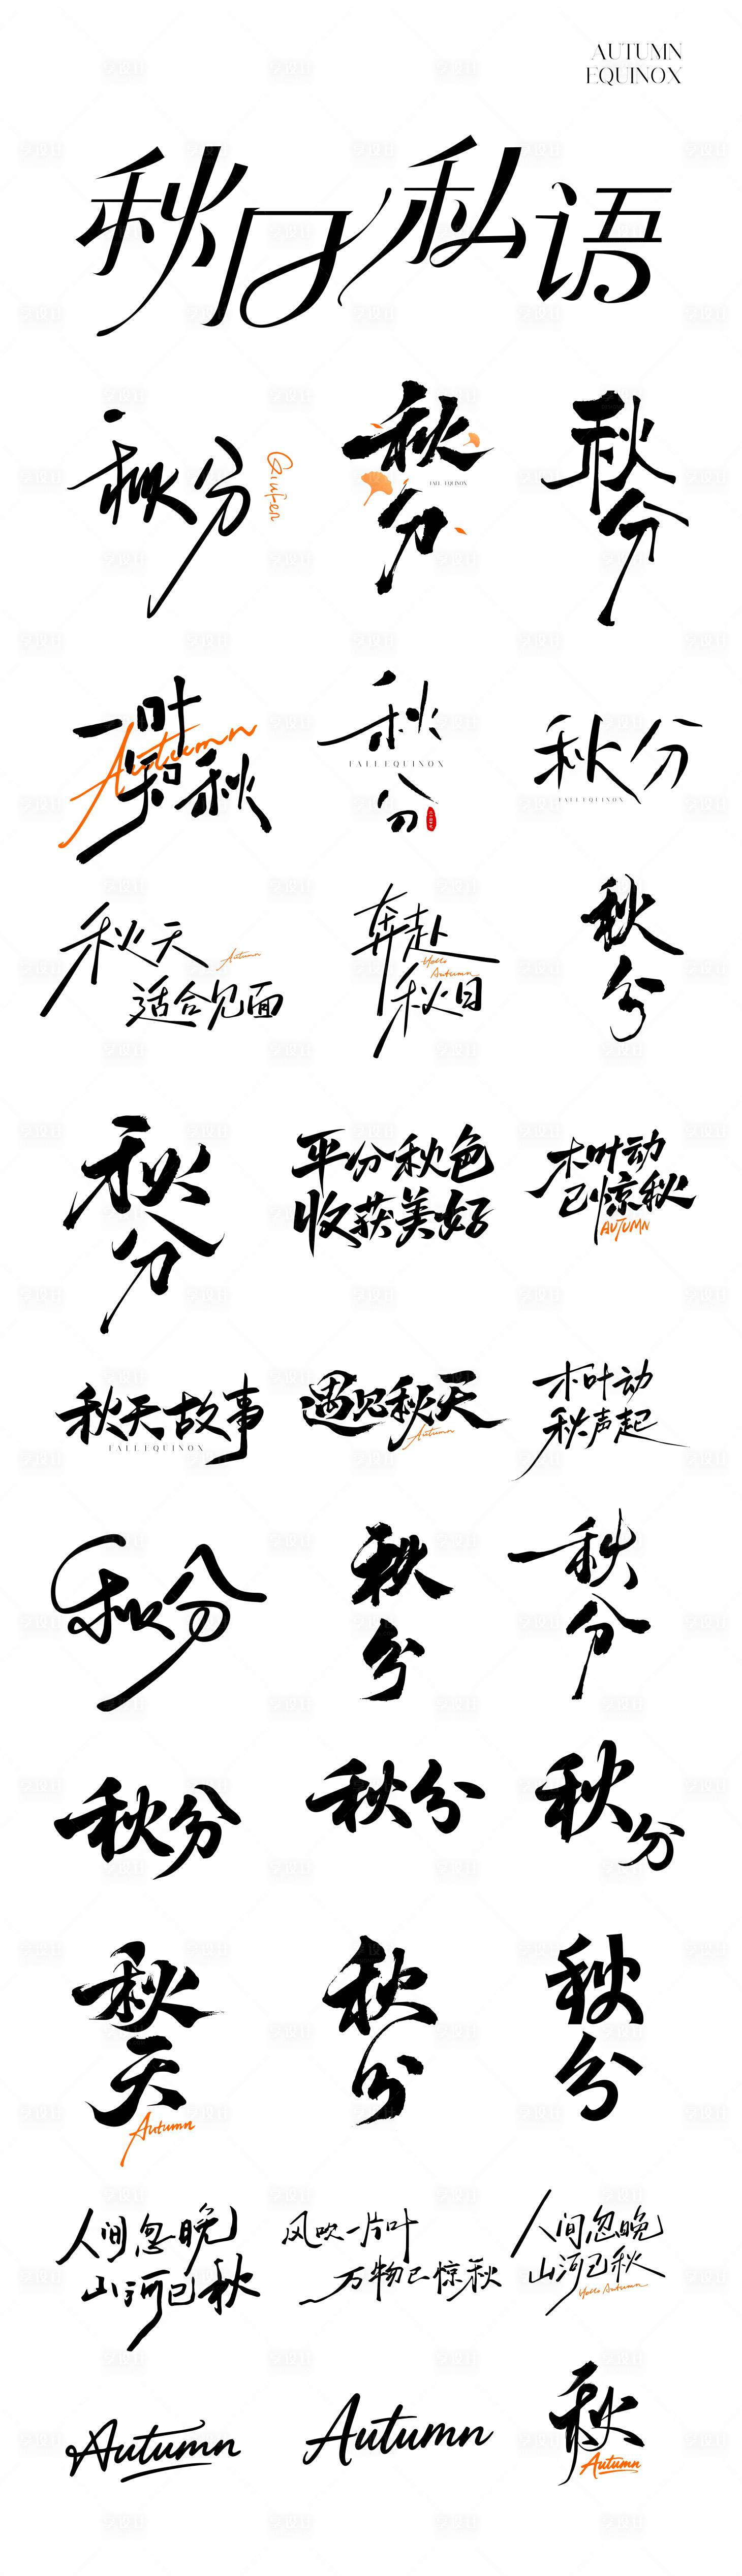 AUTUMN
EQUINOX
秋日私语
秋分
Qiufen
秋分
FALL EQUINOX
秋分
一叶
知秋
Autumn
秋
FALL EQUINOX
分
秋分
FALL EQUINOX
秋天
Autumn
适合见面
奔赴
Hello
Autumn
秋日
秋分
秋分
平分秋色
收获美好
木叶动
已惊秋
AUTUMN
秋天故事
FALL EQUINOX
遇见秋天
Autumn
木叶动
秋声起
秋分
秋分
秋分
秋分
秋分
秋分
秋天
Autumn
秋分
秋分
人间忽晚
山河已秋
风吹一片叶
万物已惊秋
人间忽晚
山河已秋
Hello Autumn
Autumn
Autumn
秋
Autumn